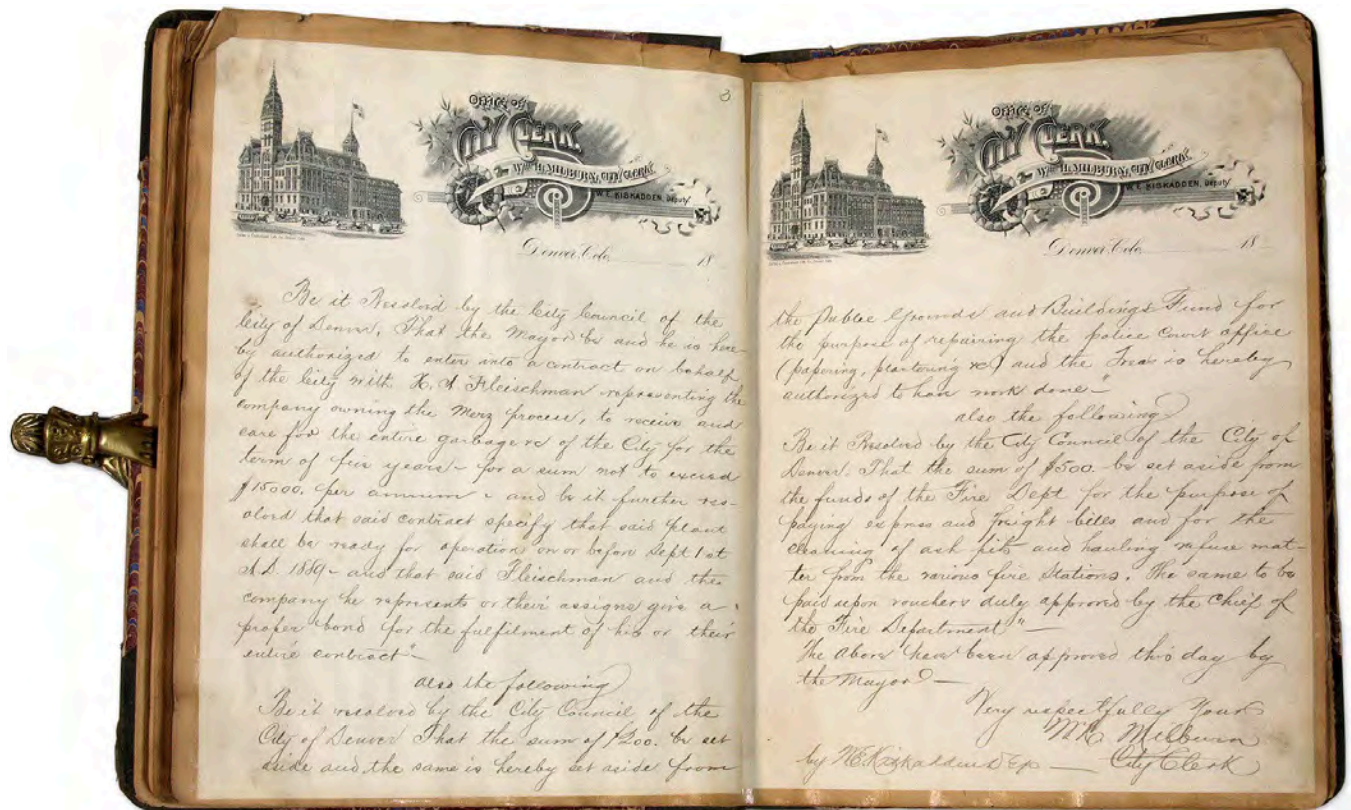 OFFICE OF
CITY CLERK.
WM R. MILBURN, CITY CLERK.
W. E. KISKADDEN, Deputy
3
Denver, Colo. 18
Be it Resolvd by the City Council of the
City of Denver, That the Mayor be and he is here
by authorized to enter into a contract on behalf
of the City with H. A. Fleischman representing the
company owning the Merz process, to receive and
care for the entire garbage &c of the City for the
term of five years – for a sum not to exceed
$15000. per annum – and be it further res-
olved that said contract specify that said plant
shall be ready for operation on or before Sept 1st
A.D. 1889 – and that said Fleischman and the
company he represents or their assigns give a
proper bond for the fulfilment of his or their
entire contract" –
also the following
Be it resolved by the City Council of the
City of Denver That the sum of $200. be set
aside and the same is hereby set aside from
OFFICE OF
CITY CLERK.
WM R. MILBURN, CITY CLERK.
W. E. KISKADDEN, Deputy
Denver, Colo. 18
the Public Grounds and Buildings Fund for
the purpose of repairing the police Court office
(papering, plastering &c) and the is hereby
authorized to have work done – "
also the following
Be it Resolved by the City Council of the City of
Denver. That the sum of $500 – be set aside from
the funds of the Fire Dept for the purpose of
paying express and freight bills and for the
cleaning of ash pits and hauling refuse mat-
ter from the various fire Stations. The same to be
paid upon vouchers duly approved by the Chief of
the Fire Department" –
The above have been approved this day by
the Mayor –
Very respectfully Yours
Milburn
by W E Kiskadden Dep — City Clerk